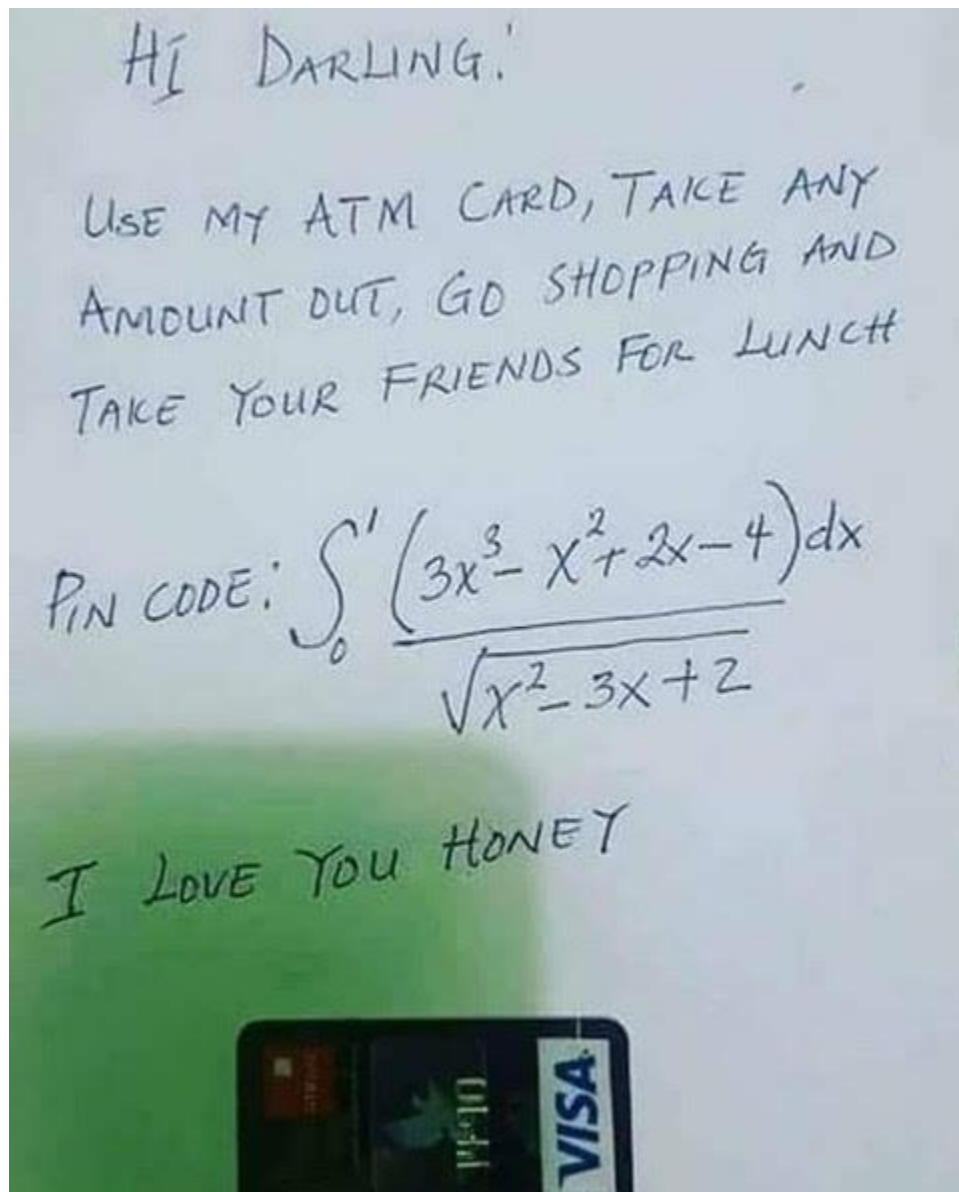 HI DARLING!
USE MY ATM CARD, TAKE ANY
AMOUNT OUT, GO SHOPPING AND
TAKE YOUR FRIENDS FOR LUNCH
PIN CODE: ∫₀¹ (3x³ - x² + 2x - 4)dx
√x² - 3x + 2
I LOVE YOU HONEY
VISA